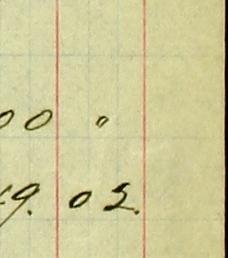 00 "
49. 02.